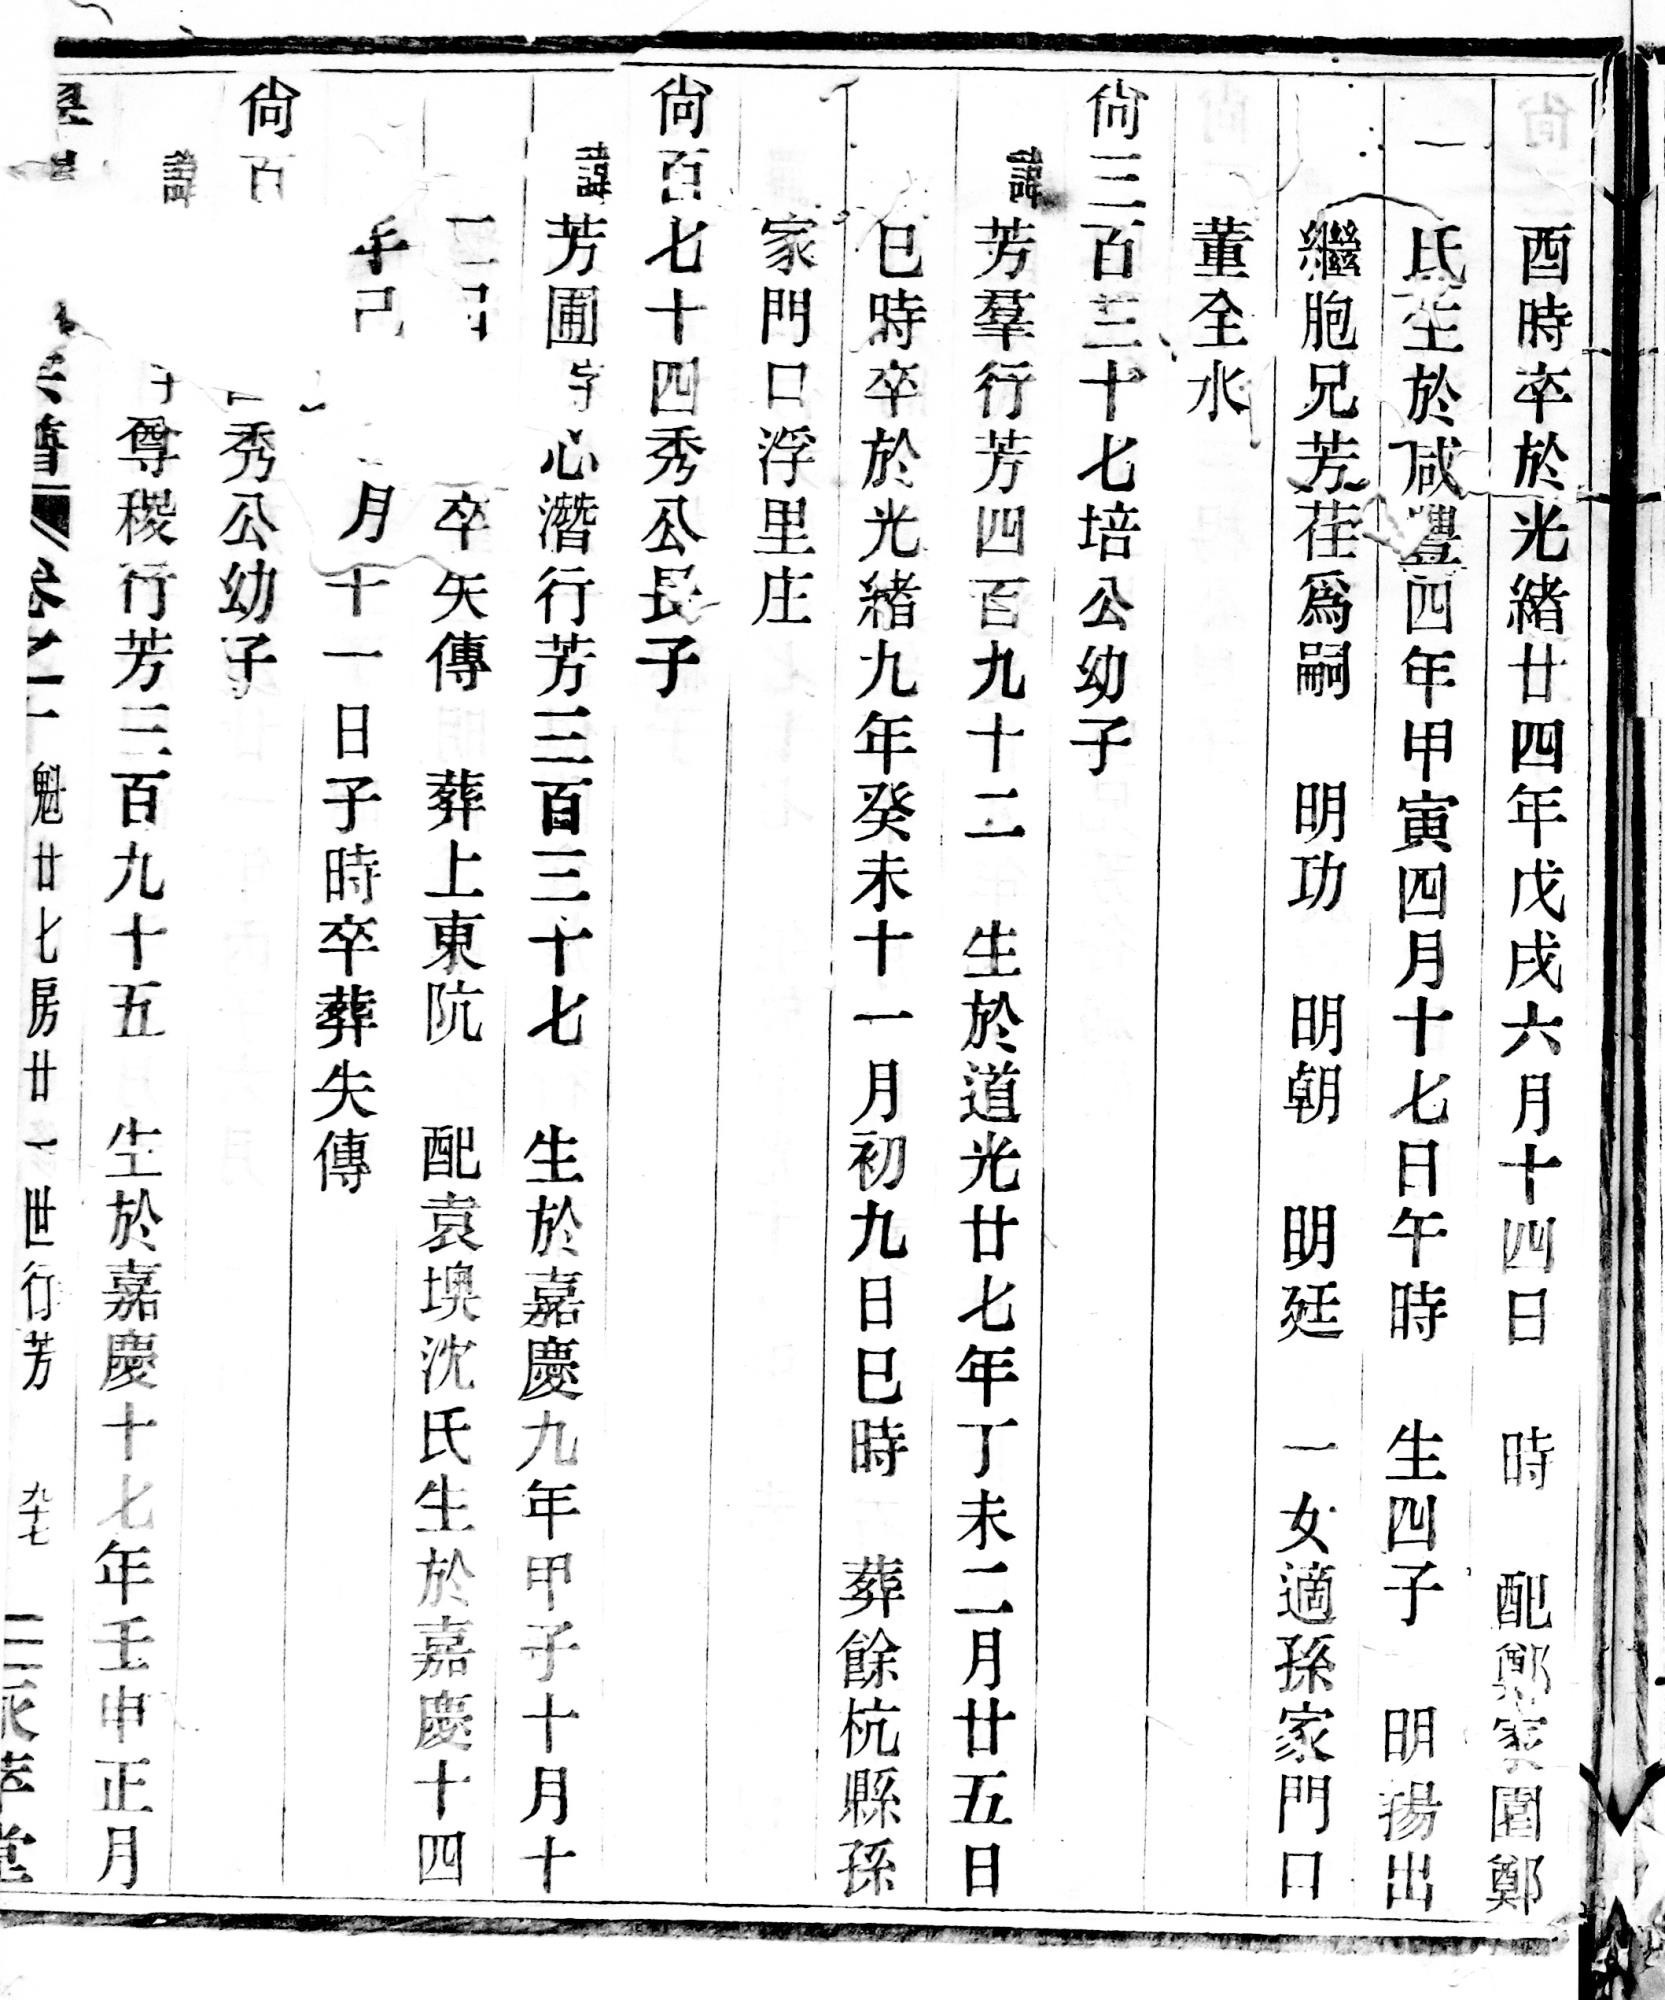 酉時卒於光緒廿四年戊戌六月十四日 時 配鄭家園鄭
氏生於咸豐四年甲寅四月十七日午時 生四子 明揚出
繼胞兄芳荏爲嗣 明功 明朝 明廷 一女適孫家門口
董全水
尙三百三十七培公幼子
諱芳羣行芳四百九十二 生於道光廿七年丁未二月廿五日
巳時卒於光緒九年癸未十一月初九日巳時 葬餘杭縣孫
家門口浮里庄
尙百七十四秀公長子
諱芳圃字心潛行芳三百三十七 生於嘉慶九年甲子十月十
卒失傳 葬上東阬 配袁墺沈氏生於嘉慶十四
年己 月十一日子時卒葬失傳
尙百 秀公幼子
諱 尊稷行芳三百九十五 生於嘉慶十七年壬申正月
宗譜 卷之十一 魁廿七房廿一世行芳 九十七 萃堂